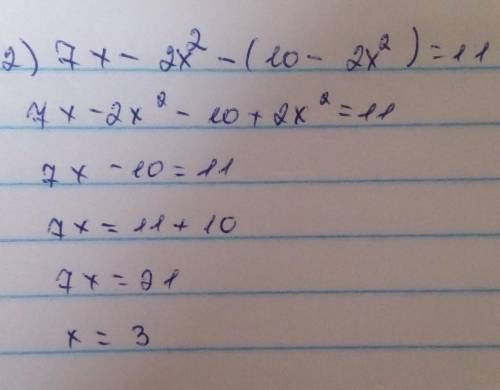 2) 7x - 2x² - (10 - 2x²) = 11
7x - 2x² - 10 + 2x² = 11
7x - 10 = 11
7x = 11 + 10
7x = 21
x = 3